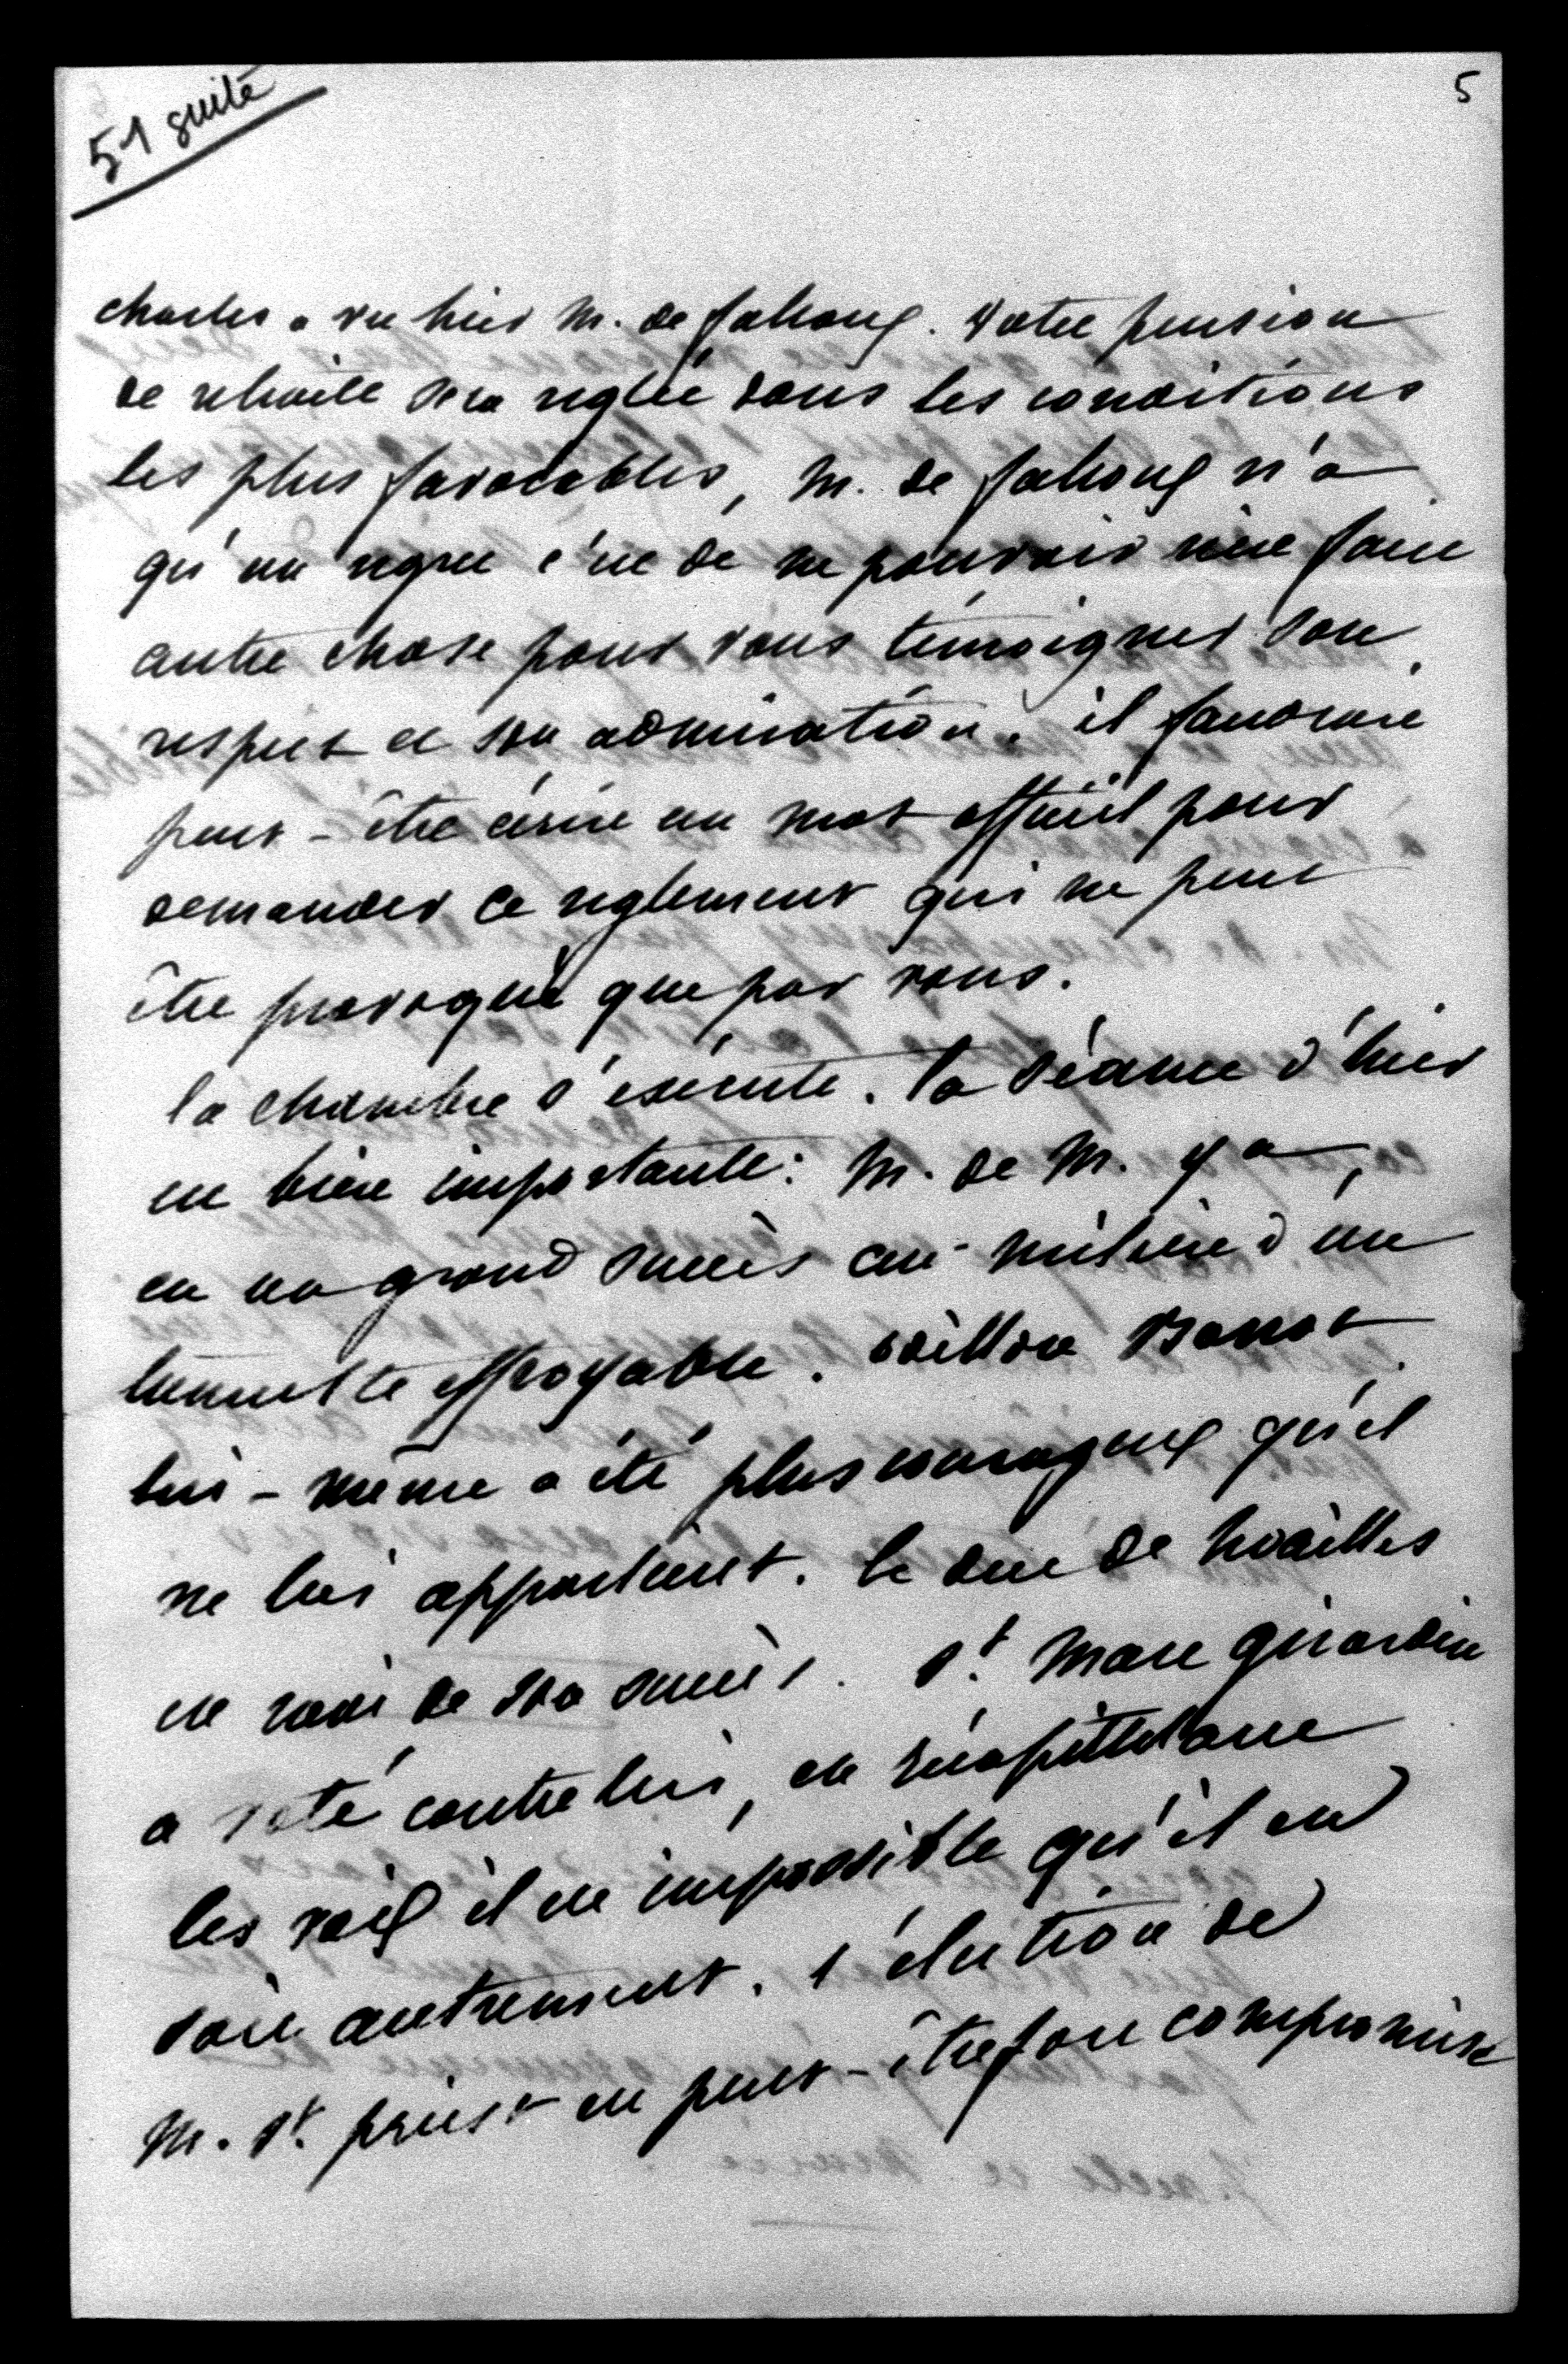 51 suite
5
charles a vu hier M. de falloux. Votre pension
de retraite sera reglée dans les conditions
les plus favorables, M. de falloux n'a
qu'un regret c'est de ne pouvoir rien faire
autre chose pour vous témoigner son
respect et son admiration. il faudrait
peut-être écrire un mot officiel pour
demander ce reglement qui ne peut
être provoqué que par vous.
la chambre s'exécute. la séance d'hier
est bien importante : M. de M. y a
eu un grand succès au milieu d'un
tumulte effroyable. odillon Barrot
lui-même a été plus courageux qu'il
ne lui appartient. le duc de Noailles
est ravi de son succès. St. Marc girardin
a voté contre lui, en récapitulant
les voix il est impossible qu'il en
soit autrement. l'élection de
M. St. priest est peut-être fort compromise